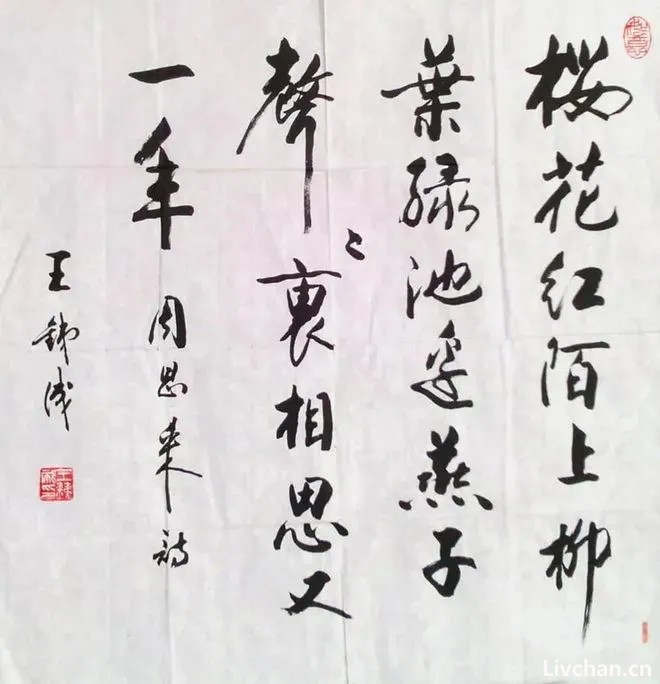 樱花红陌上柳
葉绿池边燕子
聲〻裏相思又
一年
周恩来詩
王鉄成
Livchan.cn